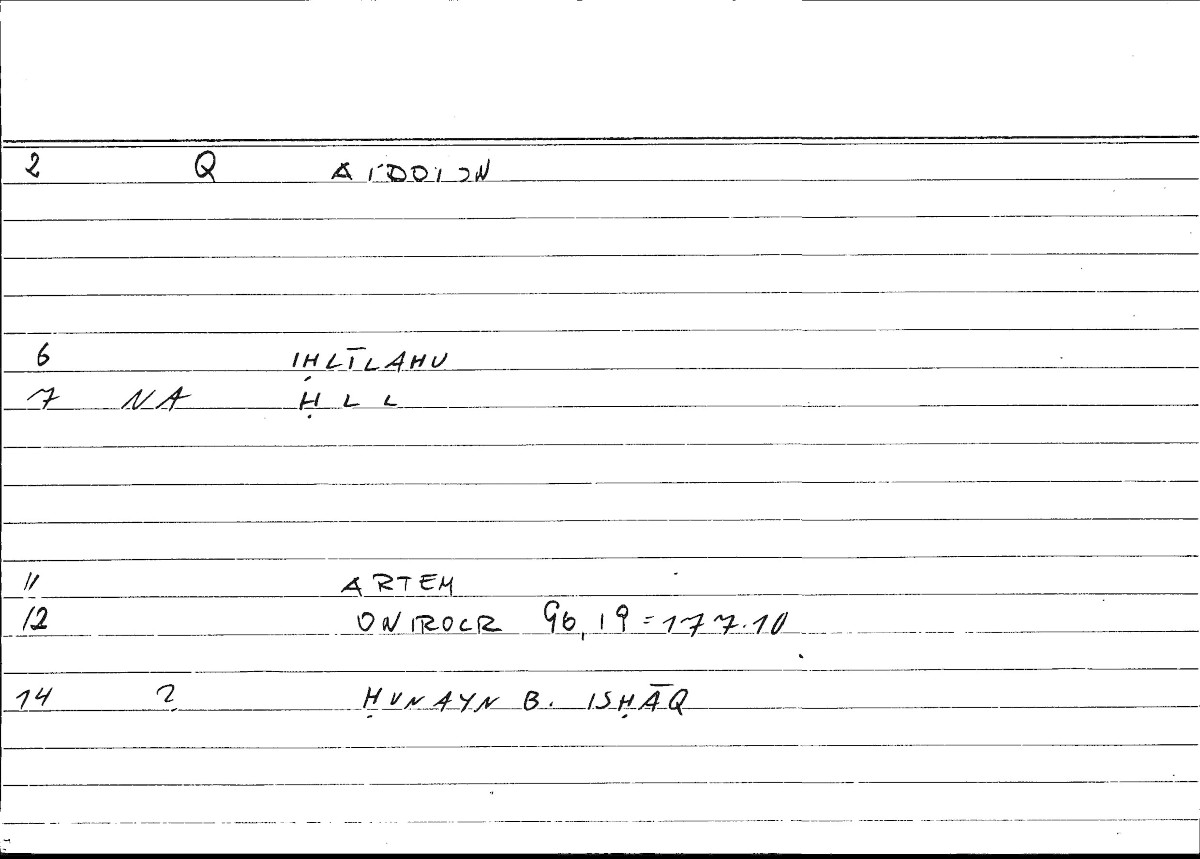 2 Q AIDOION
6 IḤLĪLAHU
7 NA Ḥ L L
11 ARTEM
12 ONIROCR 96,19=177.10
14 ? ḤUNAYN B. ISḤĀQ